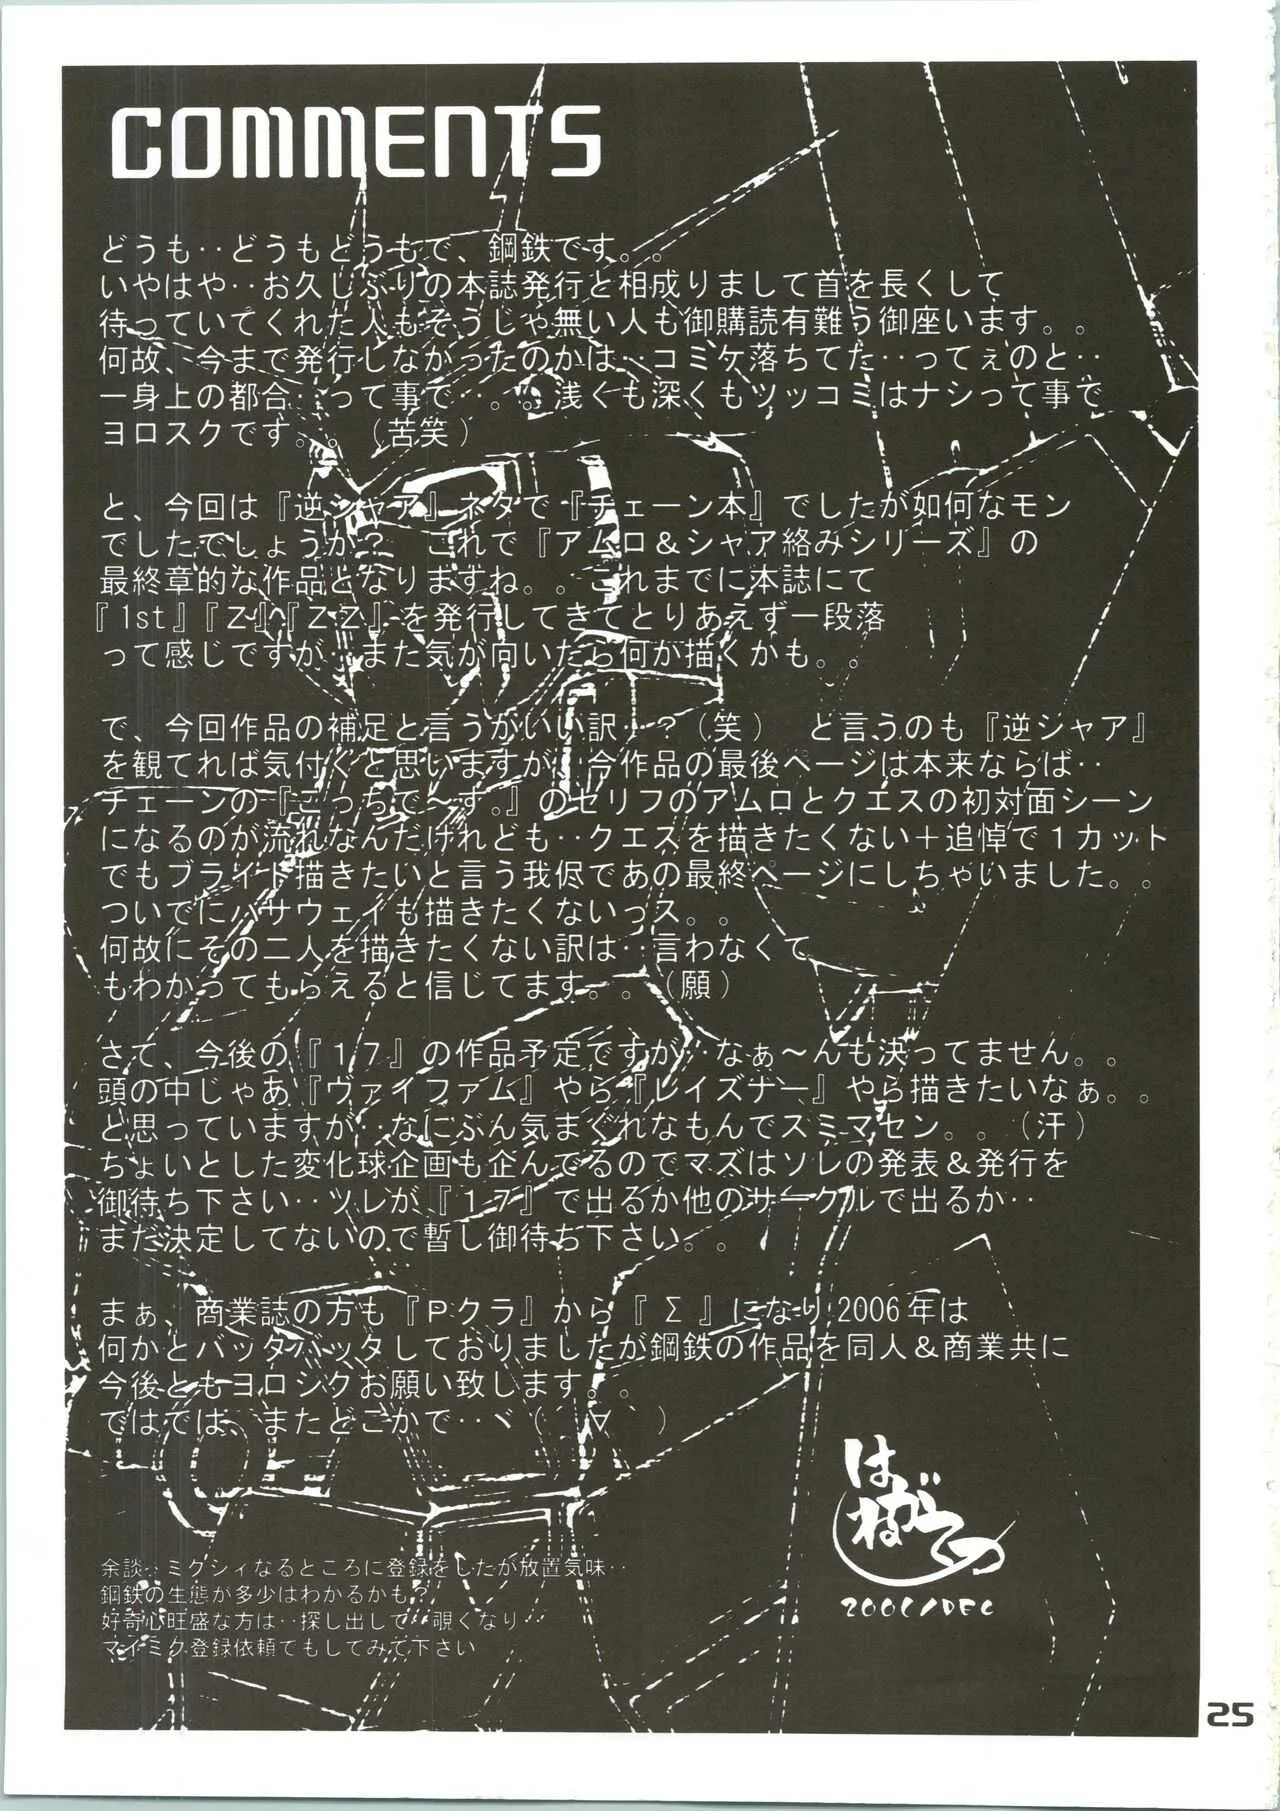 COMMENTS
どうも‥どうもどうもで、鋼鉄です。。
いやはや‥お久しぶりの本誌発行と相成りまして首を長くして
待っていてくれた人もそうじゃ無い人も御購読有難う御座います。。
何故、今まで発行しなかったのかは‥コミケ落ちてた‥ってぇのと‥
一身上の都合‥って事で‥。。浅くも深くもツッコミはナシって事で
ヨロスクです。。（苦笑）
と、今回は『逆シャア』ネタで『チェーン本』でしたが如何なモン
でしたでしょうか？　これで『アムロ＆シャア絡みシリーズ』の
最終章的な作品となりますね。。これまでに本誌にて
『1st』『Z』『ZZ』を発行してきてとりあえず一段落
って感じですが‥また気が向いたら何か描くかも。。
で、今回作品の補足と言うかいい訳‥？（笑）　と言うのも『逆シャア』
を観てれば気付くと思いますが‥今作品の最後ページは本来ならば‥
チェーンの『こっちで〜す。』のセリフのアムロとクエスの初対面シーン
になるのが流れなんだけれども‥クエスを描きたくない＋追悼で１カット
でもブライト描きたいと言う我侭であの最終ページにしちゃいました。。
ついでにハサウェイも描きたくないっス。。
何故にその二人を描きたくない訳は‥言わなくて
もわかってもらえると信じてます。。（願）
さて、今後の『１７』の作品予定ですが‥なぁ〜んも決ってません。。
頭の中じゃあ『ヴァイファム』やら『レイズナー』やら描きたいなぁ。。
と思っていますが‥なにぶん気まぐれなもんでスミマセン。。（汗）
ちょいとした変化球企画も企んでるのでマズはソレの発表＆発行を
御待ち下さい‥ソレが『１７』で出るか他のサークルで出るか‥
まだ決定してないので暫し御待ち下さい。。
まぁ、商業誌の方も『Pクラ』から『Σ』になり2006年は
何かとバッタバッタしておりましたが鋼鉄の作品を同人＆商業共に
今後ともヨロシクお願い致します。。
ではでは、またどこかで‥ヾ（´∀｀）
はがねてつ
2006/DEC
余談‥ミクシィなるところに登録をしたが放置気味‥
鋼鉄の生態が多少はわかるかも？
好奇心旺盛な方は‥探し出して‥覗くなり‥
マイミク登録依頼でもしてみて下さい
25